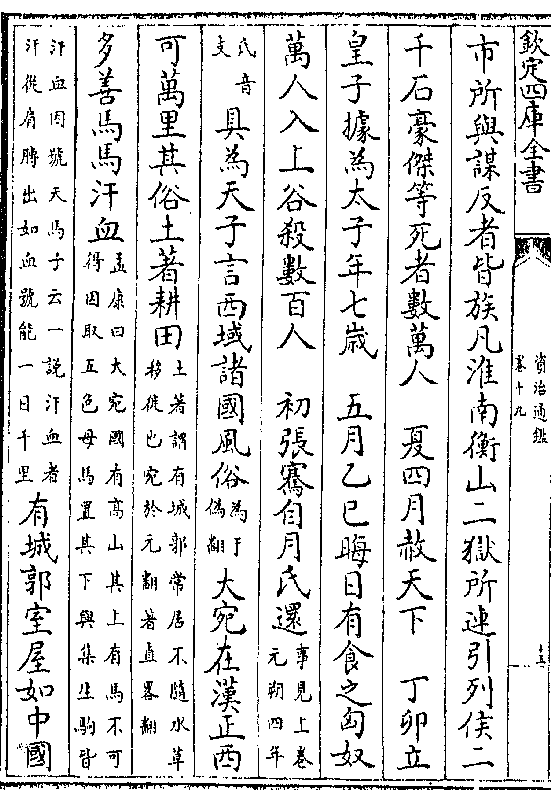 欽定四庫全書
資治通鑑
卷十九
十五
市所與謀反者皆族凡淮南衡山二獄所連引列侯二
千石豪傑等死者數萬人　夏四月赦天下　丁卯立
皇子據為太子年七歲　五月乙巳晦日有食之匈奴
萬人入上谷殺數百人　初張騫自月氏還事見上卷元朔四年
氏音支具為天子言西域諸國風俗為于偽翻大宛在漢正西
可萬里其俗土著耕田土著謂有城郭常居不隨水草移徙也宛於元翻著直畧翻
多善馬馬汗血孟康曰大宛國有髙山其上有馬不可得因取五色母馬置其下與集生駒皆
汗血因號天馬子云一說汗血者汗從肩膊出如血號能一日千里有城郭室屋如中國